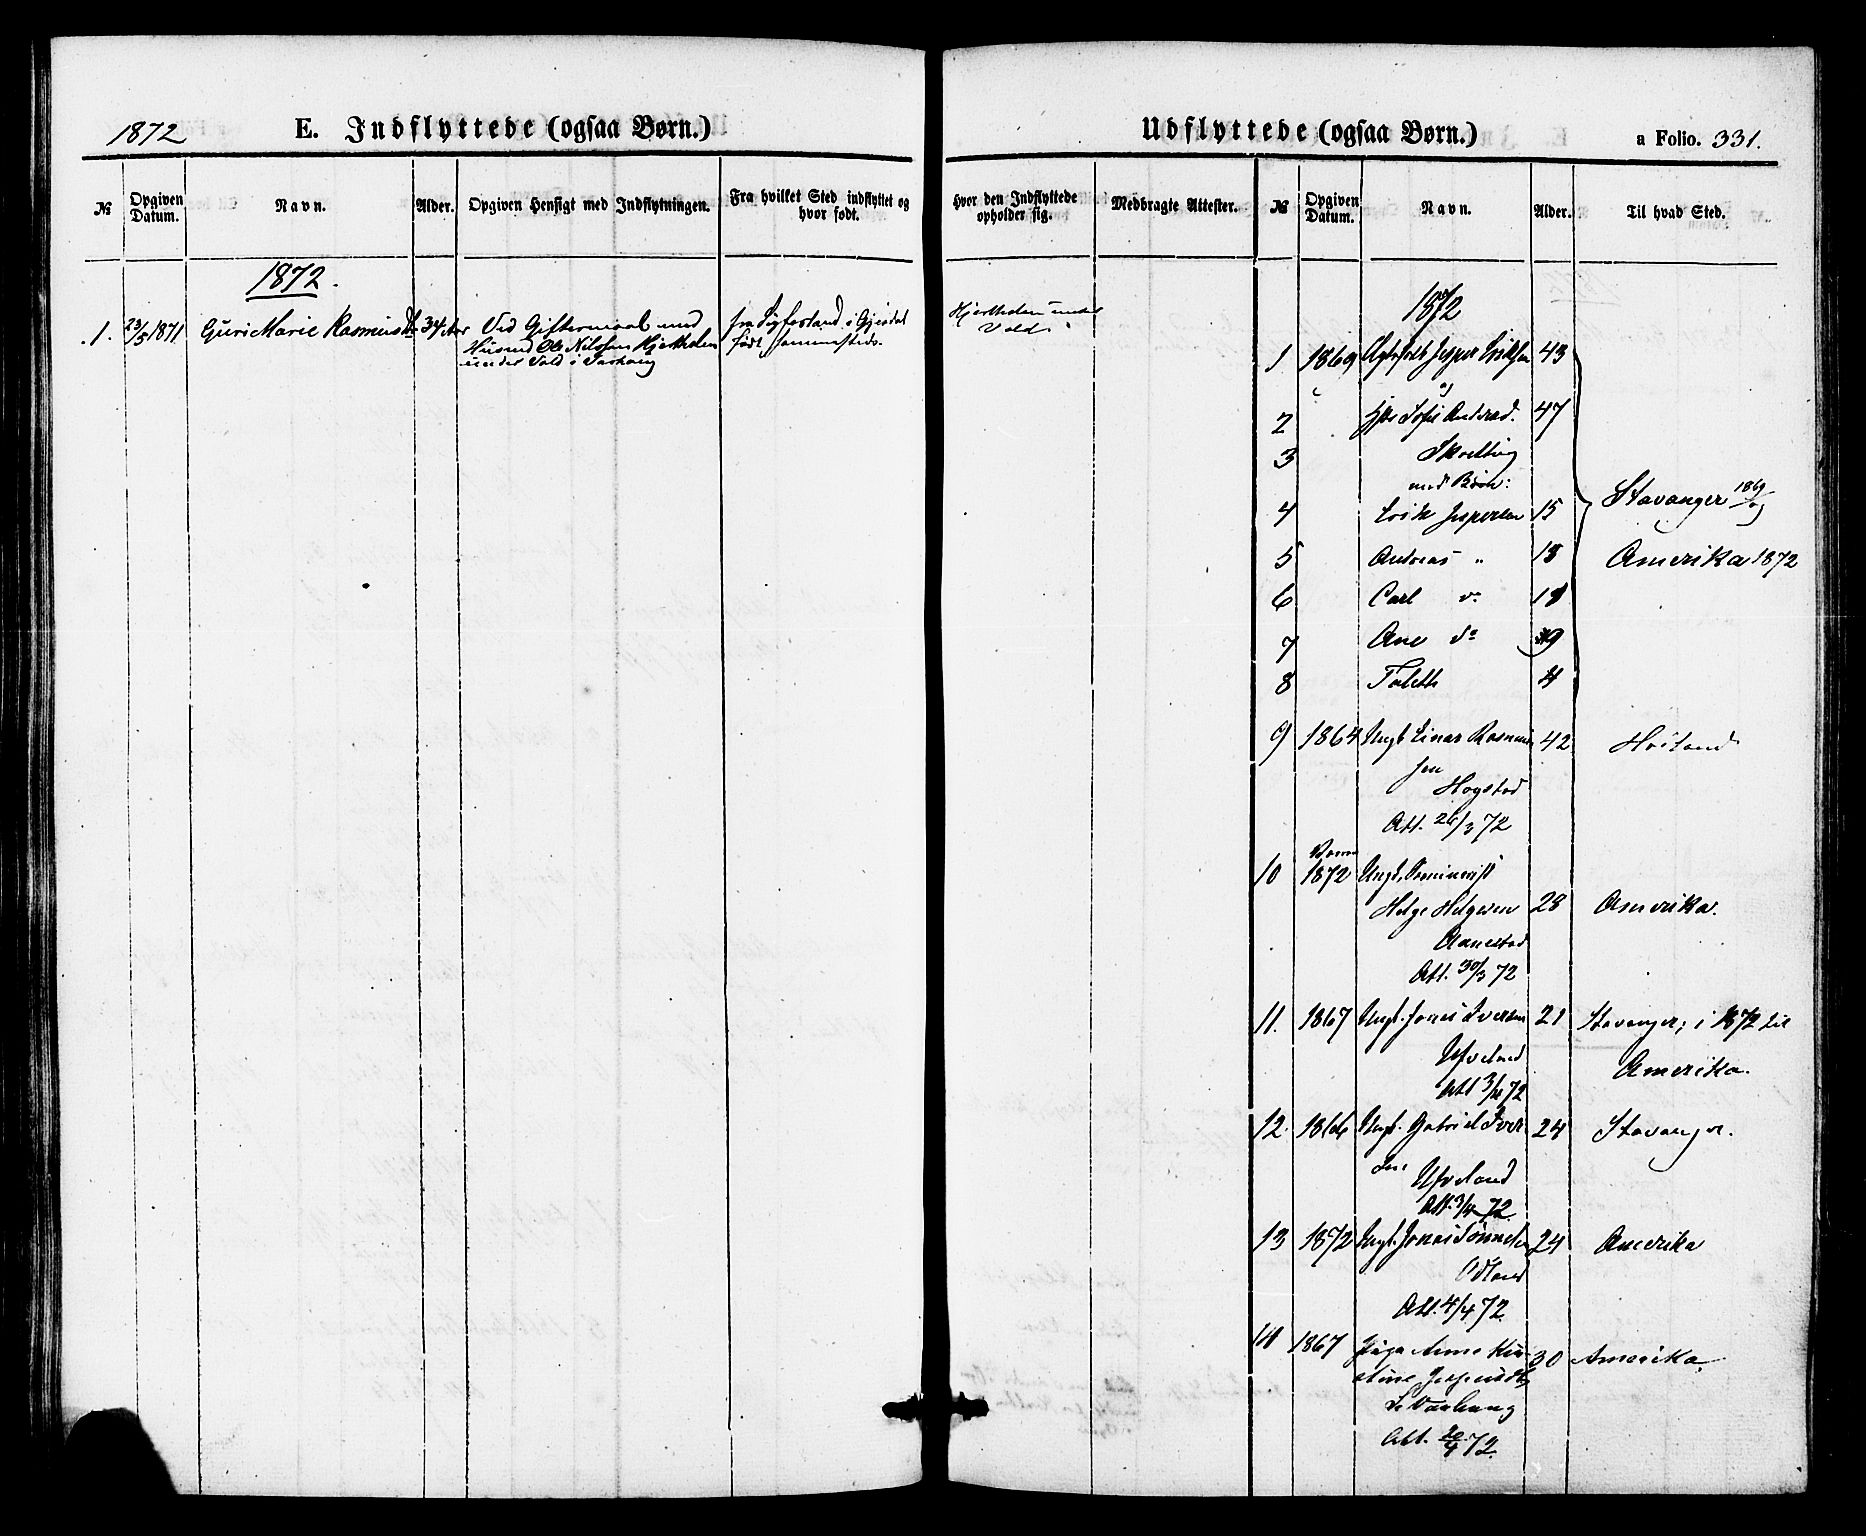 1872
E. Indflyttede (ogsaa Børn.)
№
Opgiven Datum.
Navn.
Alder.
Opgiven Hensigt med Indflytningen.
Fra hvilket Sted indflyttet og hvor født.
1872.
1. 23/5 1871 Guri Marie Rasmusdr 34 Aar Ved Giftermaal med fra i Gjesdal
Husmd Ole Nilssen Hjertholen født sammesteds.
under Vold i
Udflyttede (ogsaa Børn.)
a Folio. 331.
Hvor den Indflyttede opholder sig.
Medbragte Attester.
№
Opgiven Datum.
Navn.
Alder.
Til hvad Sted.
under
Vold
1872
1 1869 Jesper Eriksen 43
og
2 Sofie 47
3
med Børn:
4 Erik Jespersen 15 Stavanger 1869 og
5 Andreas " 13 Amerika 1872
6 Carl do 11
7 Ane do 9
8 Taleth 4
9 1864 Ungk. Einar Rasmus 42
sen
Hogstad
Att. 26/3 72
10 1872 Ungk. Seminarist
Helge Helgesen 28 Amerika.
Aanestad
Att. 30/3 72
11. 1867 Ungk. Jonas Iversen 21 Stavanger; i 1872 til
Ufveland Amerika.
Att 3/4 72
12. 1866 Ungk. Gabriel Iver 24 Stavanger.
sen
Ufveland
Att. 3/4 72.
13 1872 Ungk. Jonas Tønnesen 24 Amerika
Odland
Att. 4/4 72.
14 1867 Piga Anne Kir- 30 Amerika.
stine Jespersdtr
Att. 20/4 72.